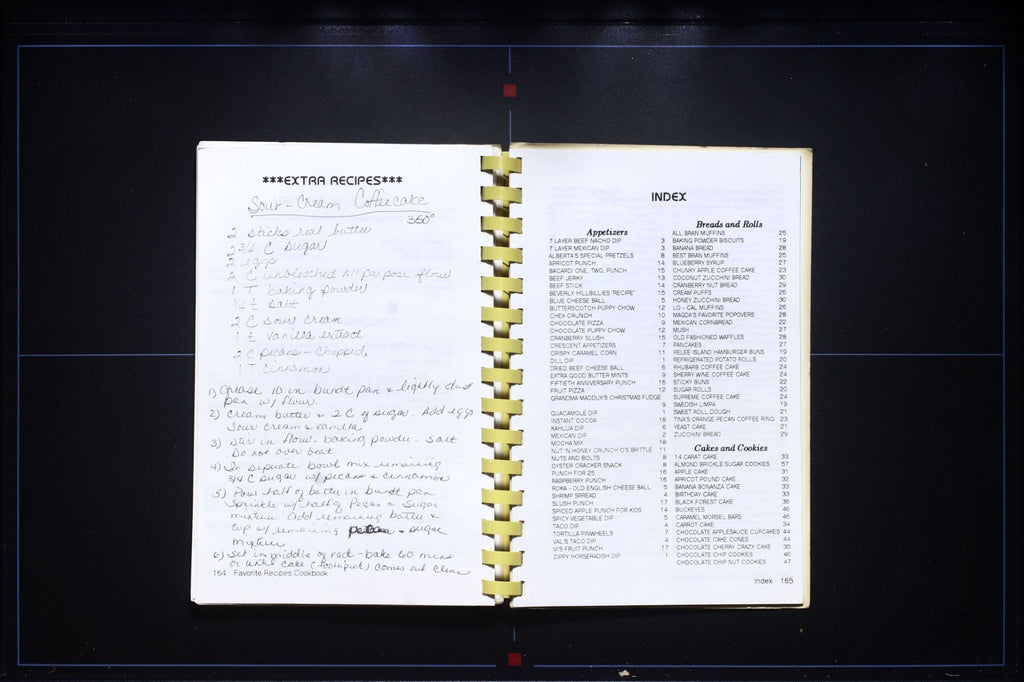 ***EXTRA RECIPES***
Sour-Cream Coffeecake
350°
2 sticks real butter
2 3/4 C sugar
2 eggs
2 C unbleached all purpose flour
1 T baking powder
1/4 t salt
2 C sour cream
1 t vanilla extract
2 C pecans - chopped
1 T cinnamon
1) Grease 10 in bundt pan & lightly dust
pan w/ flour.
2) Cream butter & 2 C of sugar. Add eggs
Sour cream & vanilla
3) Stir in flour. baking powder. salt
Do not over beat
4) In seperate bowl mix remaining
3/4 C sugar w/ pecans & cinnamon
5) Pour half of batter in bundt pan
Sprinkle w/ half of Pecan & Sugar
mixture add remaining batter &
top w/ remaining & sugar
mixture
6) Set in middle of rack - bake 60 mins
or until cake (toothpick) comes out clean
164 Favorite Recipes Cookbook
INDEX
Appetizers
7 LAYER BEEF NACHO DIP 3
7 LAYER MEXICAN DIP 3
ALBERTA'S SPECIAL PRETZELS 8
APRICOT PUNCH 14
BACARDI ONE, TWO, PUNCH 15
BEEF JERKY 13
BEEF STICK 14
BEVERLY HILLBILLIES "RECIPE" 15
BLUE CHEESE BALL 5
BUTTERSCOTCH PUPPY CHOW 12
CHEX CRUNCH 10
CHOCOLATE PIZZA 9
CHOCOLATE PUPPY CHOW 12
CRANBERRY SLUSH 15
CRESCENT APPETIZERS 7
CRISPY CARAMEL CORN 11
DILL DIP 1
DRIED BEEF CHEESE BALL 6
EXTRA GOOD BUTTER MINTS 9
FIFTIETH ANNIVERSARY PUNCH 16
FRUIT PIZZA 12
GRANDMA MADDUX'S CHRISTMAS FUDGE
9
GUACAMOLE DIP 1
INSTANT COCOA 18
KAHLUA DIP 6
MEXICAN DIP 2
MOCHA MIX 18
NUT 'N HONEY CRUNCH O'S BRITTLE 11
NUTS AND BOLTS 8
OYSTER CRACKER SNACK 8
PUNCH FOR 25 16
RASPBERRY PUNCH 16
ROKA - OLD ENGLISH CHEESE BALL 5
SHRIMP SPREAD 4
SLUSH PUNCH 17
SPICED APPLE PUNCH FOR KIDS 14
SPICY VEGETABLE DIP 5
TACO DIP 4
TORTILLA PINWHEELS 7
VAL'S TACO DIP 4
VI'S FRUIT PUNCH 17
ZIPPY HORSERADISH DIP 1
Breads and Rolls
ALL BRAN MUFFINS 25
BAKING POWDER BISCUITS 19
BANANA BREAD 28
BEST BRAN MUFFINS 25
BLUEBERRY SYRUP 27
CHUNKY APPLE COFFEE CAKE 23
COCONUT ZUCCHINI BREAD 30
CRANBERRY NUT BREAD 29
CREAM PUFFS 26
HONEY ZUCCHINI BREAD 30
LO - CAL MUFFINS 26
MAGDA'S FAVORITE POPOVERS 28
MEXICAN CORNBREAD 22
MUSH 27
OLD FASHIONED WAFFLES 28
PANCAKES 27
PELEE ISLAND HAMBURGER BUNS 19
REFRIGERATED POTATO ROLLS 20
RHUBARB COFFEE CAKE 24
SHERRY WINE COFFEE CAKE 24
STICKY BUNS 22
SUGAR ROLLS 20
SUPREME COFFEE CAKE 24
SWEDISH LIMPA 19
SWEET ROLL DOUGH 21
TINA'S ORANGE PECAN COFFEE RING 23
YEAST CAKE 21
ZUCCHINI BREAD 29
Cakes and Cookies
14 CARAT CAKE 33
ALMOND BRICKLE SUGAR COOKIES 57
APPLE CAKE 31
APRICOT POUND CAKE 32
BANANA BONANZA CAKE 33
BIRTHDAY CAKE 33
BLACK FOREST CAKE 36
BUCKEYES 46
CARAMEL MORSEL BARS 46
CARROT CAKE 34
CHOCOLATE APPLESAUCE CUPCAKES 44
CHOCOLATE CAKE CONES 44
CHOCOLATE CHERRY CRAZY CAKE 35
CHOCOLATE CHIP COOKIES 46
CHOCOLATE CHIP NUT COOKIES 47
Index 165